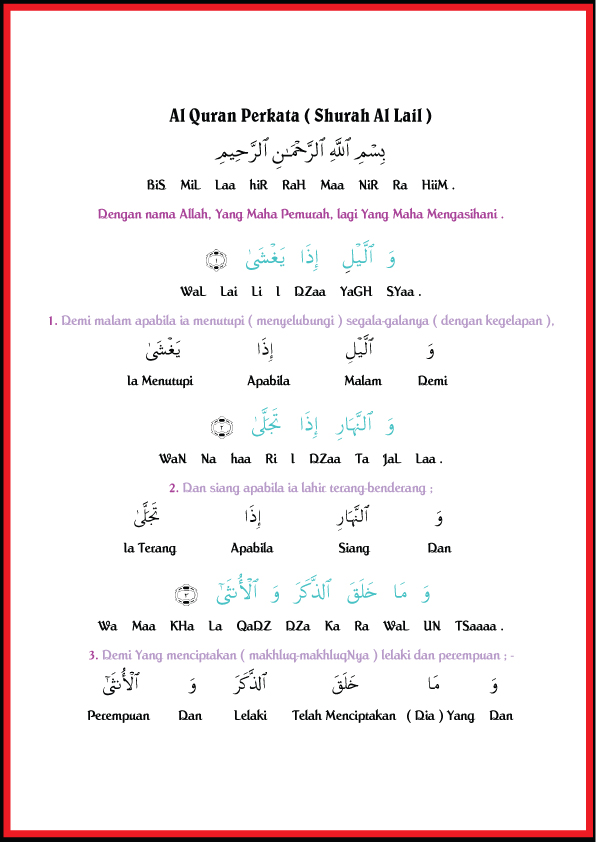 Al Quran Perkata ( Shurah Al Lail )
بِسْمِ ٱللَّهِ ٱلرَّحْمَـٰنِ ٱلرَّحِيمِ
BiS MiL Laa hiR RaH Maa NiR Ra HiiM .
Dengan nama Allah, Yang Maha Pemurah, lagi Yang Maha Mengasihani .
وَ ٱلَّيْلِ إِذَا يَغْشَىٰ ١
WaL Lai Li I DZaa YaGH SYaa .
1. Demi malam apabila ia menutupi ( menyelubungi ) segala-galanya ( dengan kegelapan ),
وَ ٱلَّيْلِ إِذَا يَغْشَىٰ
Ia Menutupi Apabila Malam Demi
وَ ٱلنَّهَارِ إِذَا تَجَلَّىٰ ٢
WaN Na haa Ri I DZaa Ta JaL Laa .
2. Dan siang apabila ia lahir terang-benderang ;
وَ ٱلنَّهَارِ إِذَا تَجَلَّىٰ
Ia Terang Apabila Siang Dan
وَ مَا خَلَقَ ٱلذَّكَرَ وَ ٱلْأُنثَىٰٓ ٣
Wa Maa KHa La QaDZ DZa Ka Ra WaL UN TSaaaa .
3. Demi Yang menciptakan ( makhluq-makhluqNya ) lelaki dan perempuan ; -
وَ مَا خَلَقَ ٱلذَّكَرَ وَ ٱلْأُنثَىٰٓ
Perempuan Dan Lelaki Telah Menciptakan ( Dia ) Yang Dan